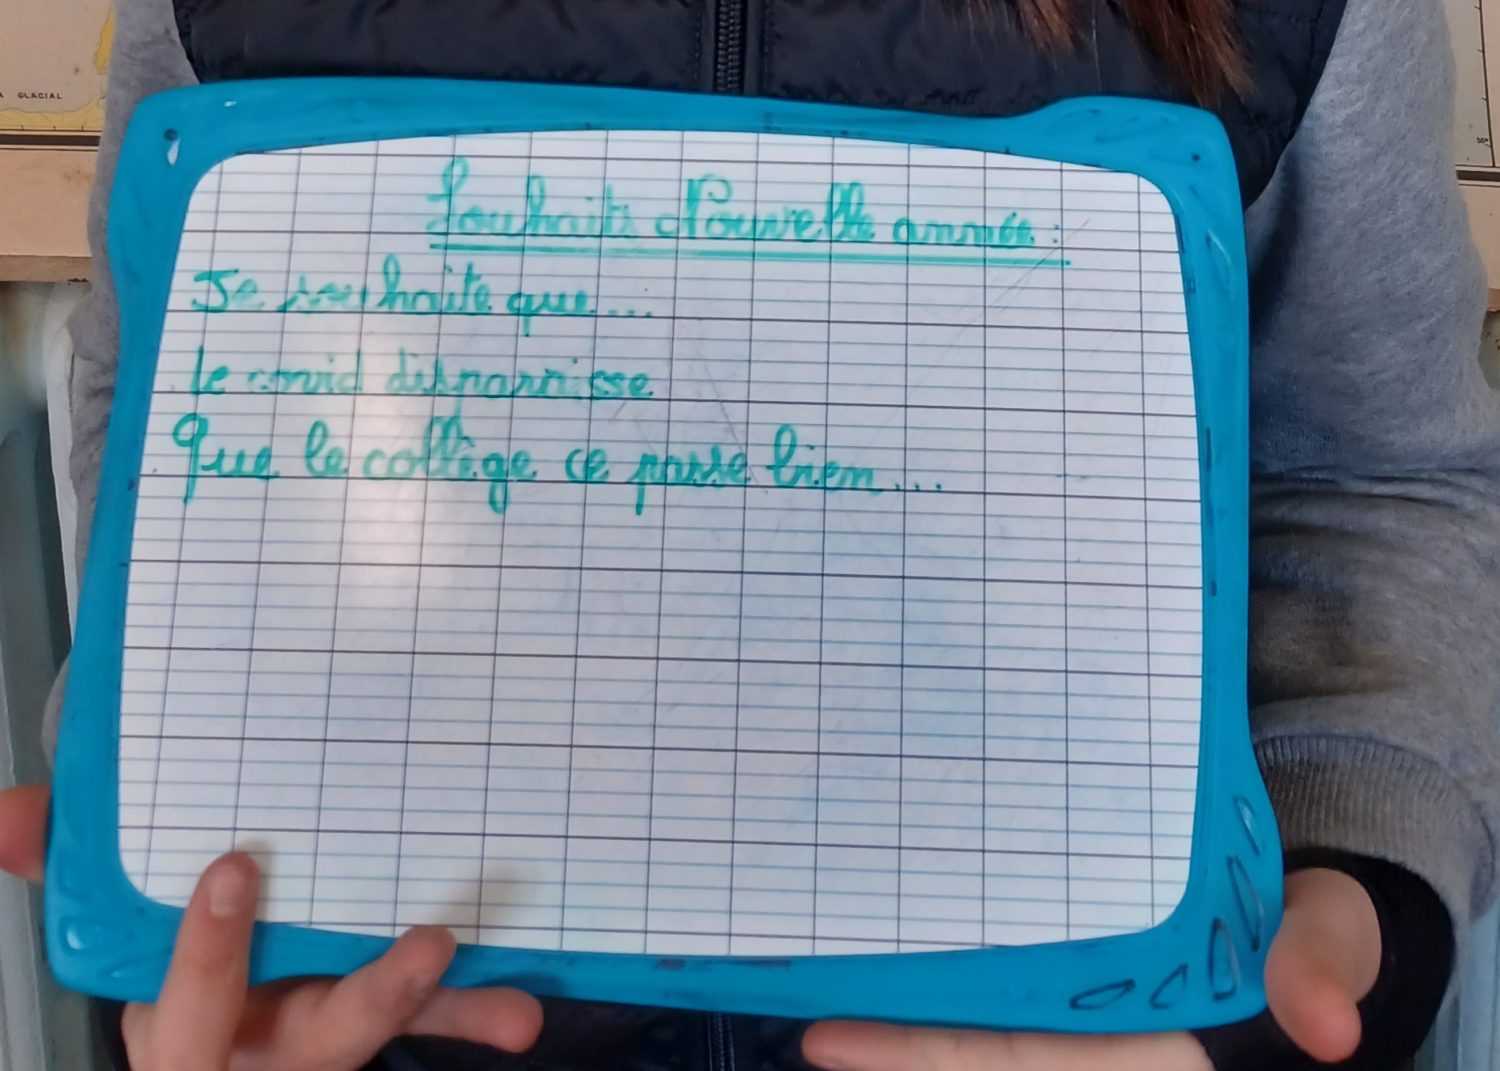 Souhaits Nouvelle année :
Je souhaite que...
le covid disparaisse
Que le collège ce passe bien...
A GLACIAL
50°